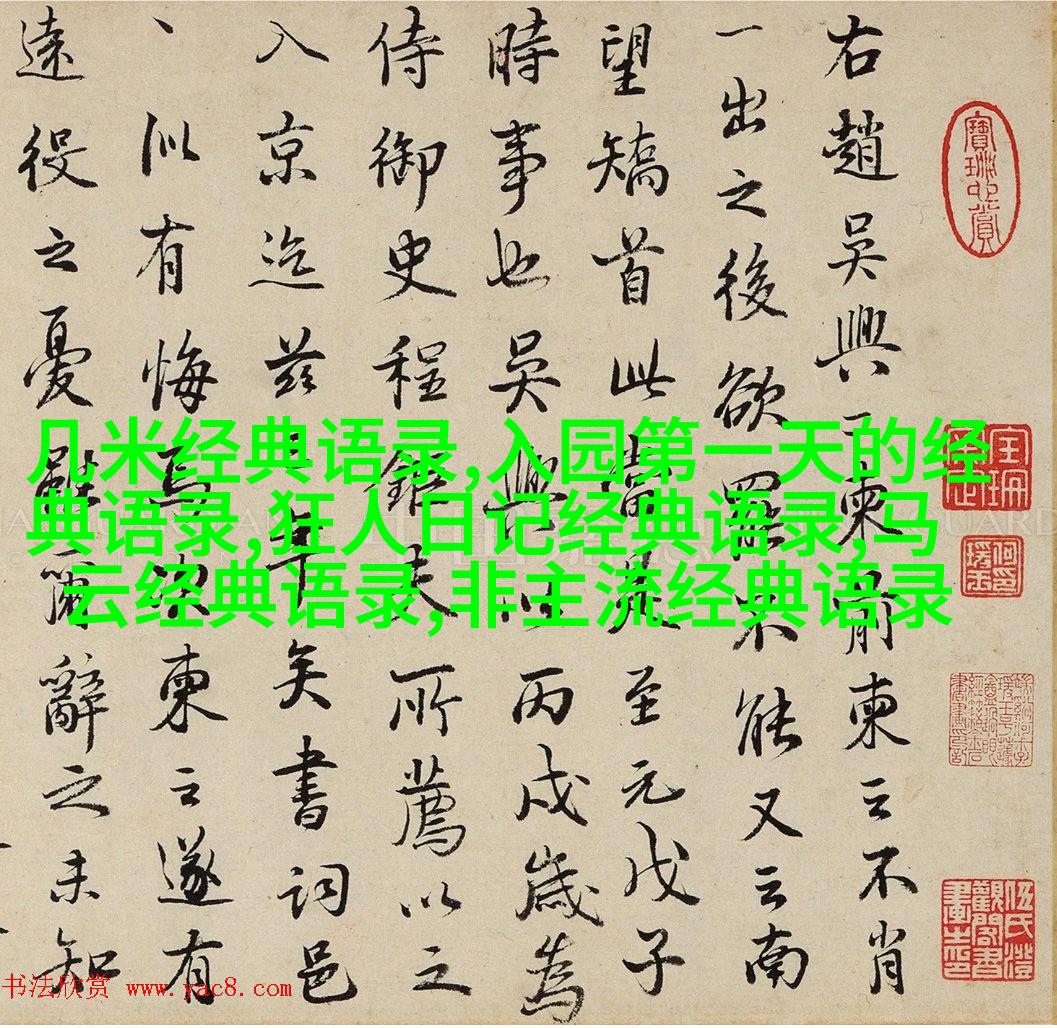 右趙吳興二柬前柬云不肖
一出之後欲罷不能又云南
望矯首此當是至元戊子
時事也吳興以丙戌歲為
侍御史程夫所薦以之
入京迄茲三年矣書詞邑
、似有悔焉次柬云遂有
遠役之憂爾辭之未知
几米经典语录,入园第一天的经
典语录,狂人日记经典语录,马
云经典语录,非主流经典语录
书法欣赏 www.yac8.com